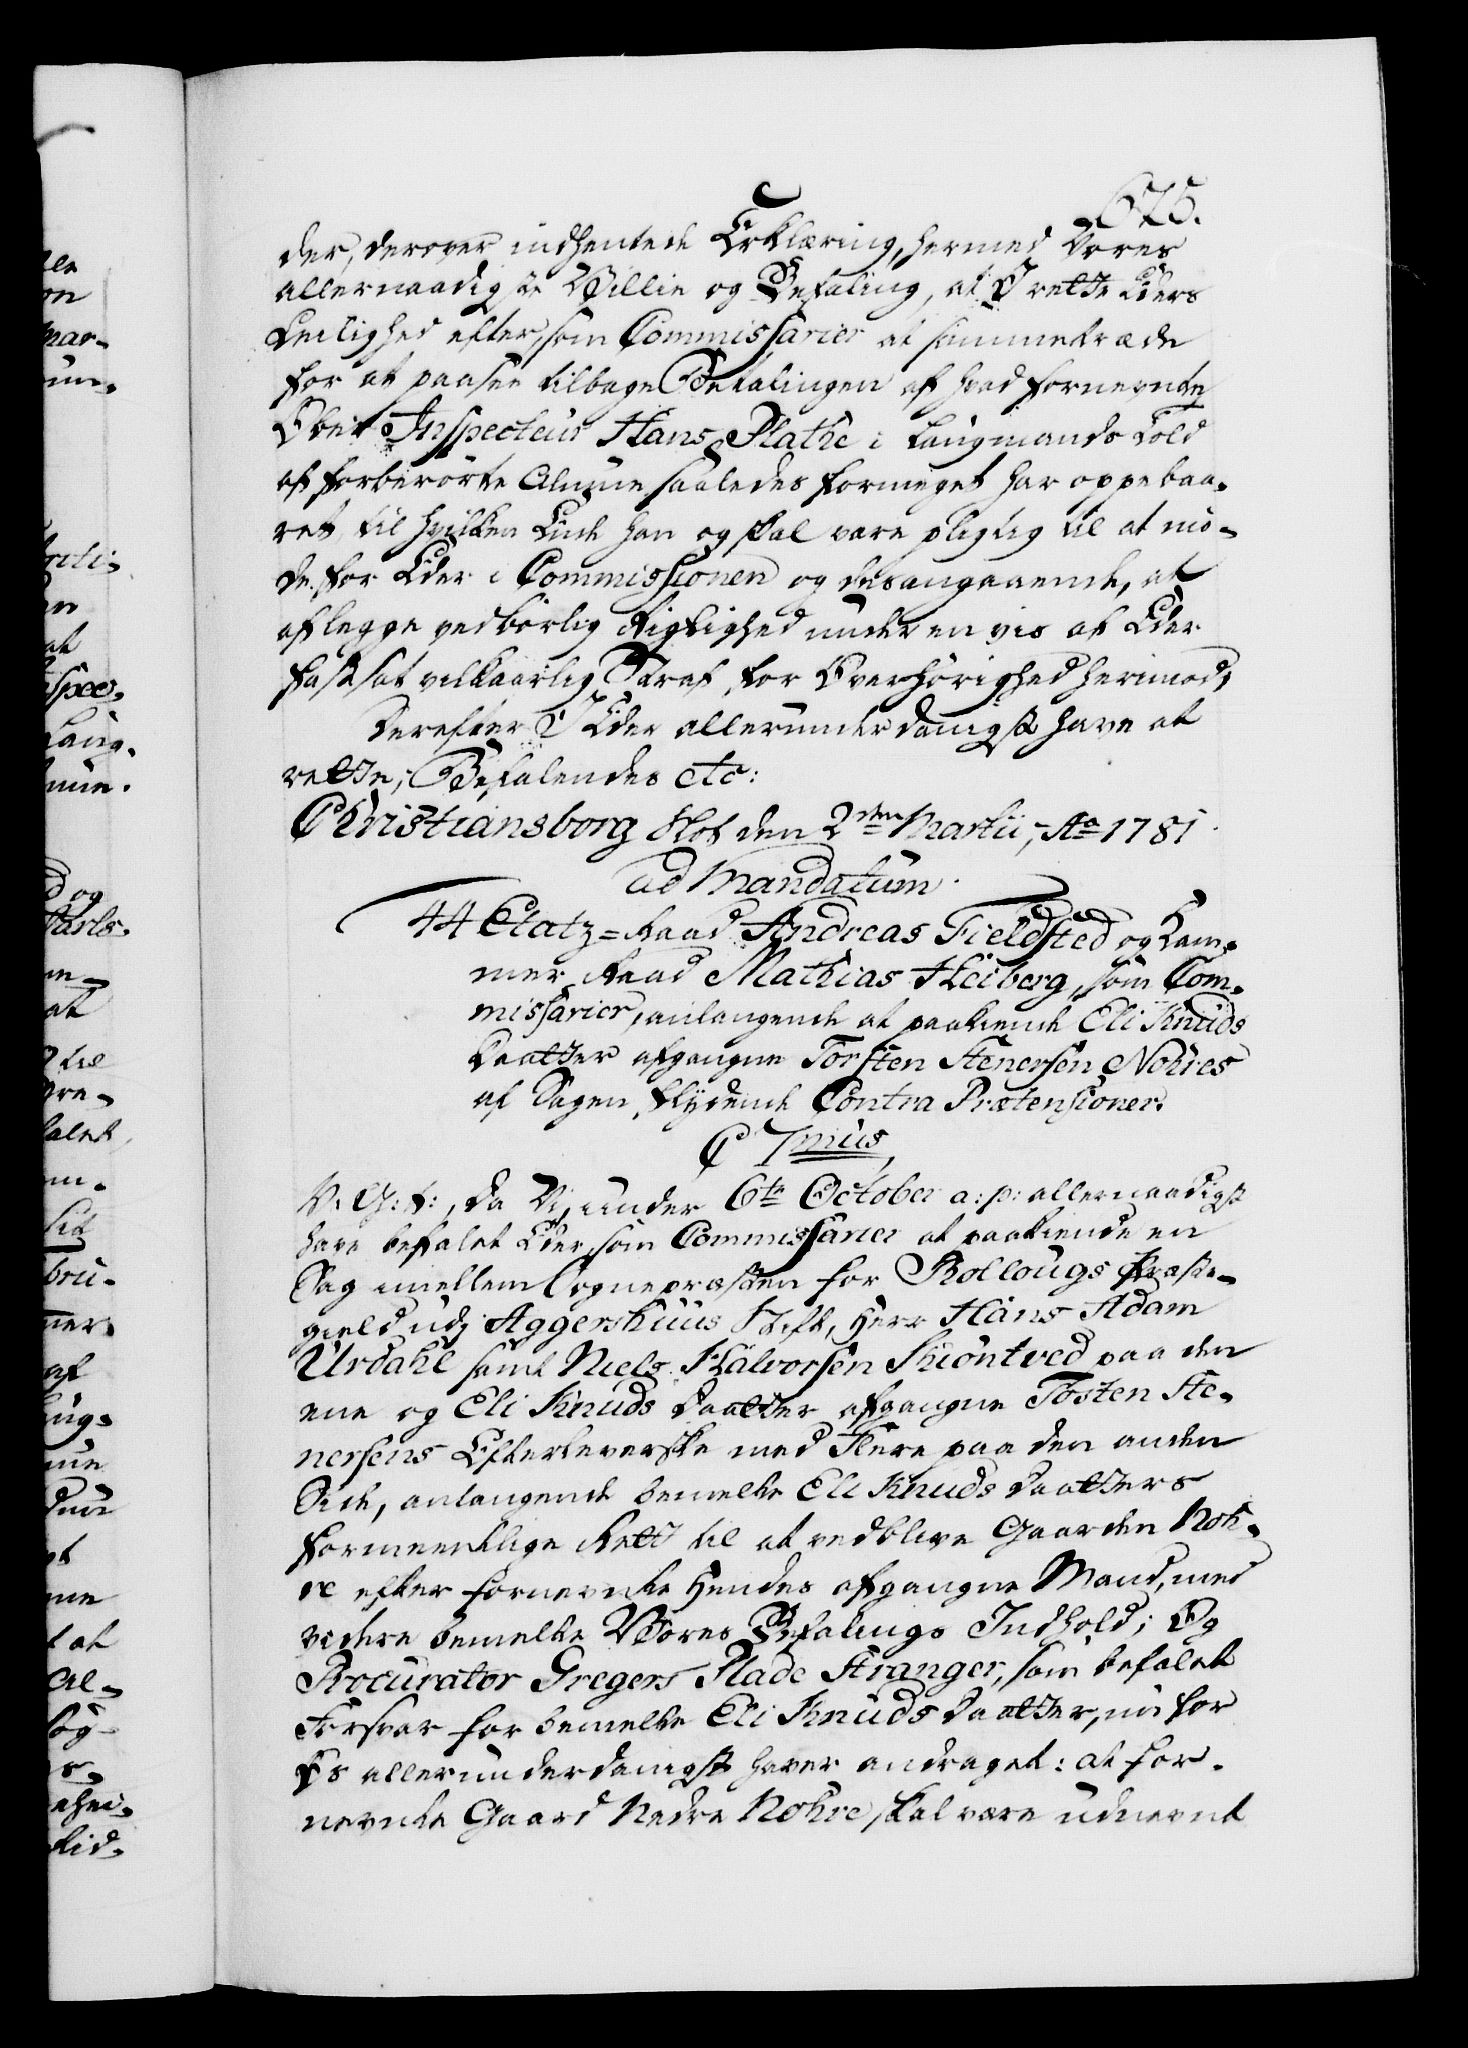 675.
der, derover indhentede Erklæring, hermed Vores
allernaadigste Villie og Befaling, at I rette Eders
Leilighed efter, som Commissarier at sammetræde
for at paasee tilbage Betalingen af hvad fornevnte
Ober-Inspecteur Hans Plathe i Laugmands Told
af forberørte Almue saaledes formeget har oppebaa-
ret, til hvilken Ende han og skal være pligtig til at mø-
de for Eder i Commissionen og desangaaende, at
aflegge vedbørlig Rigtighed under en vis af Eder
fastsat vilkaarlig Straf for Overhørighed herimod;
Derefter I Eder allerunderdanigst have at
rette; Befalendes etc:
Christiansborg Slot den 2den Martii, Ao 1781.
ad Mandatum.
44 Etatz-Raad Andreas Fieldsted og Kam-
mer Raad Mathias Heiberg, som Com-
missarier, anlangende at paakiende Eli Knuds
Daatter afgangne Torsten Stenersen Nohres
af Sagen flydende Contra Prætensioner.
C 7mus,
V. G: T:, Da Vi, under 6te October a: p: allernaadigst
have befalet Eder, som Commissarier at paakiende en
Sag imellem Sognepræsten for Rollougs Præste-
gield udj Aggershuus Stift, Herr Hans Adam
Urdahl samt Niels Halvorsen Skiøntved paa den
ene og Eli Knuds Daatter afgangne Tosten Ste-
nersens Efterleverske med Flere paa den anden
Side, anlangende bemelte Eli Knuds Daatters
formeentlige Rett til at vedblive Gaarden Noh-
re efter fornevnte Hendes afgangne Mand, med
videre bemelte Vores Befalings Indhold; Og
Procurator Gregers Plade Stranger, som befalet
Forsvar for bemelte Eli Knuds Daatter, nu for
Os allerunderdanigst haver andraget: at for-
nevnte Gaard Nedre Nohre, skal være udnevnt